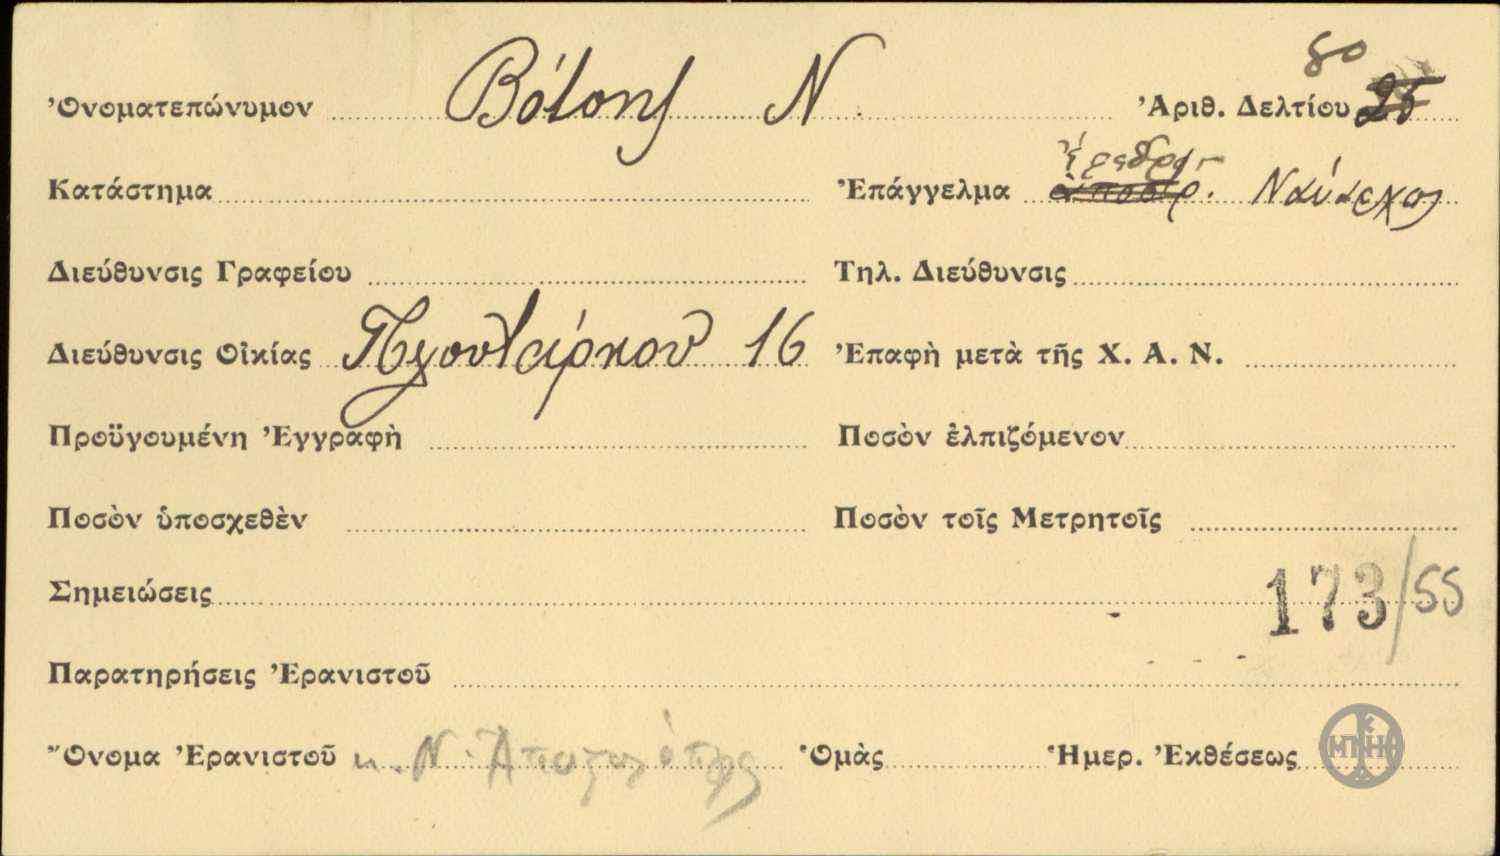 80
Ὀνοματεπώνυμον Βότσης Ν. Ἀριθ. Δελτίου 25
Ἔφεδρ.
Κατάστημα Ἐπάγγελμα ἀποστρ. Ναύαρχος
Διεύθυνσις Γραφείου Τηλ. Διεύθυνσις
Διεύθυνσις Οἰκίας Πλουτάρχου 16 Ἐπαφὴ μετὰ τῆς Χ. Α. Ν.
Προϋγουμένη Ἐγγραφὴ Ποσὸν ἐλπιζόμενον
Ποσὸν ὑποσχεθὲν Ποσὸν τοῖς Μετρητοῖς
Σημειώσεις 173/55
Παρατηρήσεις Ἐρανιστοῦ
Ὄνομα Ἐρανιστοῦ κ. Ν. Ἀποστολόπουλος Ὁμὰς Ἡμερ. Ἐκθέσεως